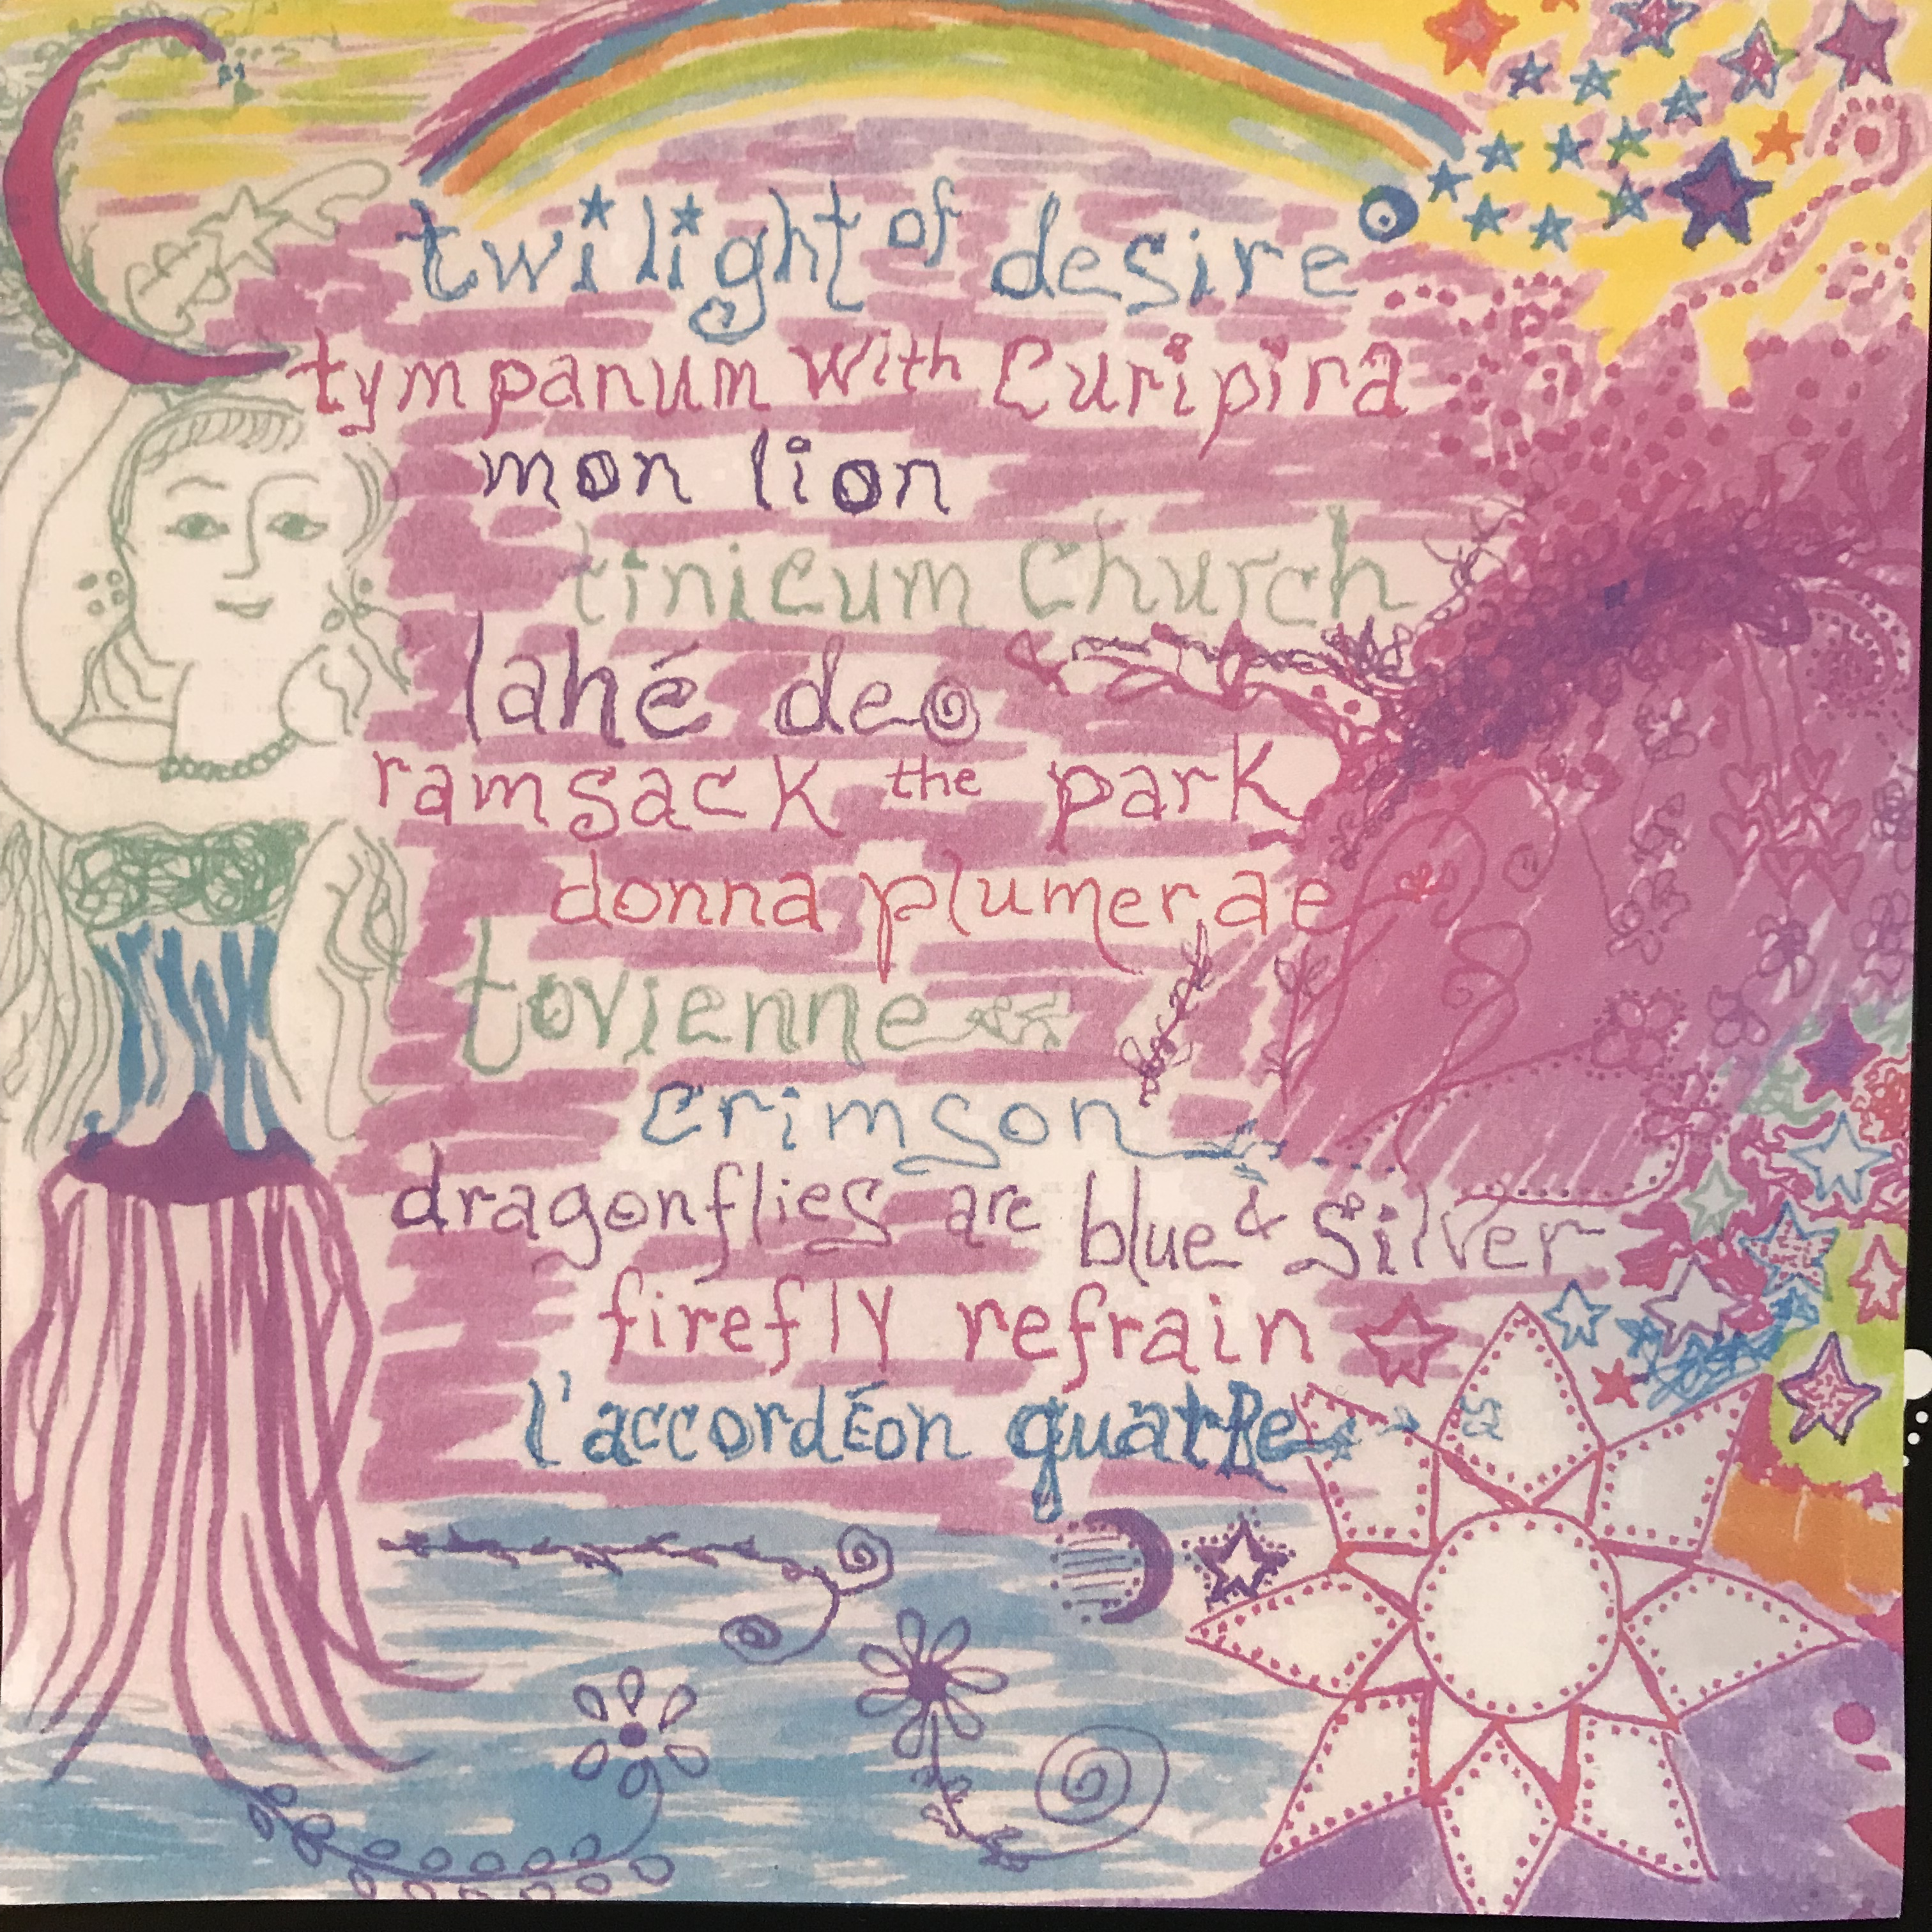 twilight of desire
tympanum with Curipira
mon lion
tinicum church
lahé deo
ramsack the park
donna plumerae
tovienne
crimson
dragonflies are blue & silver
firefly refrain
l'accordÉon quatRe